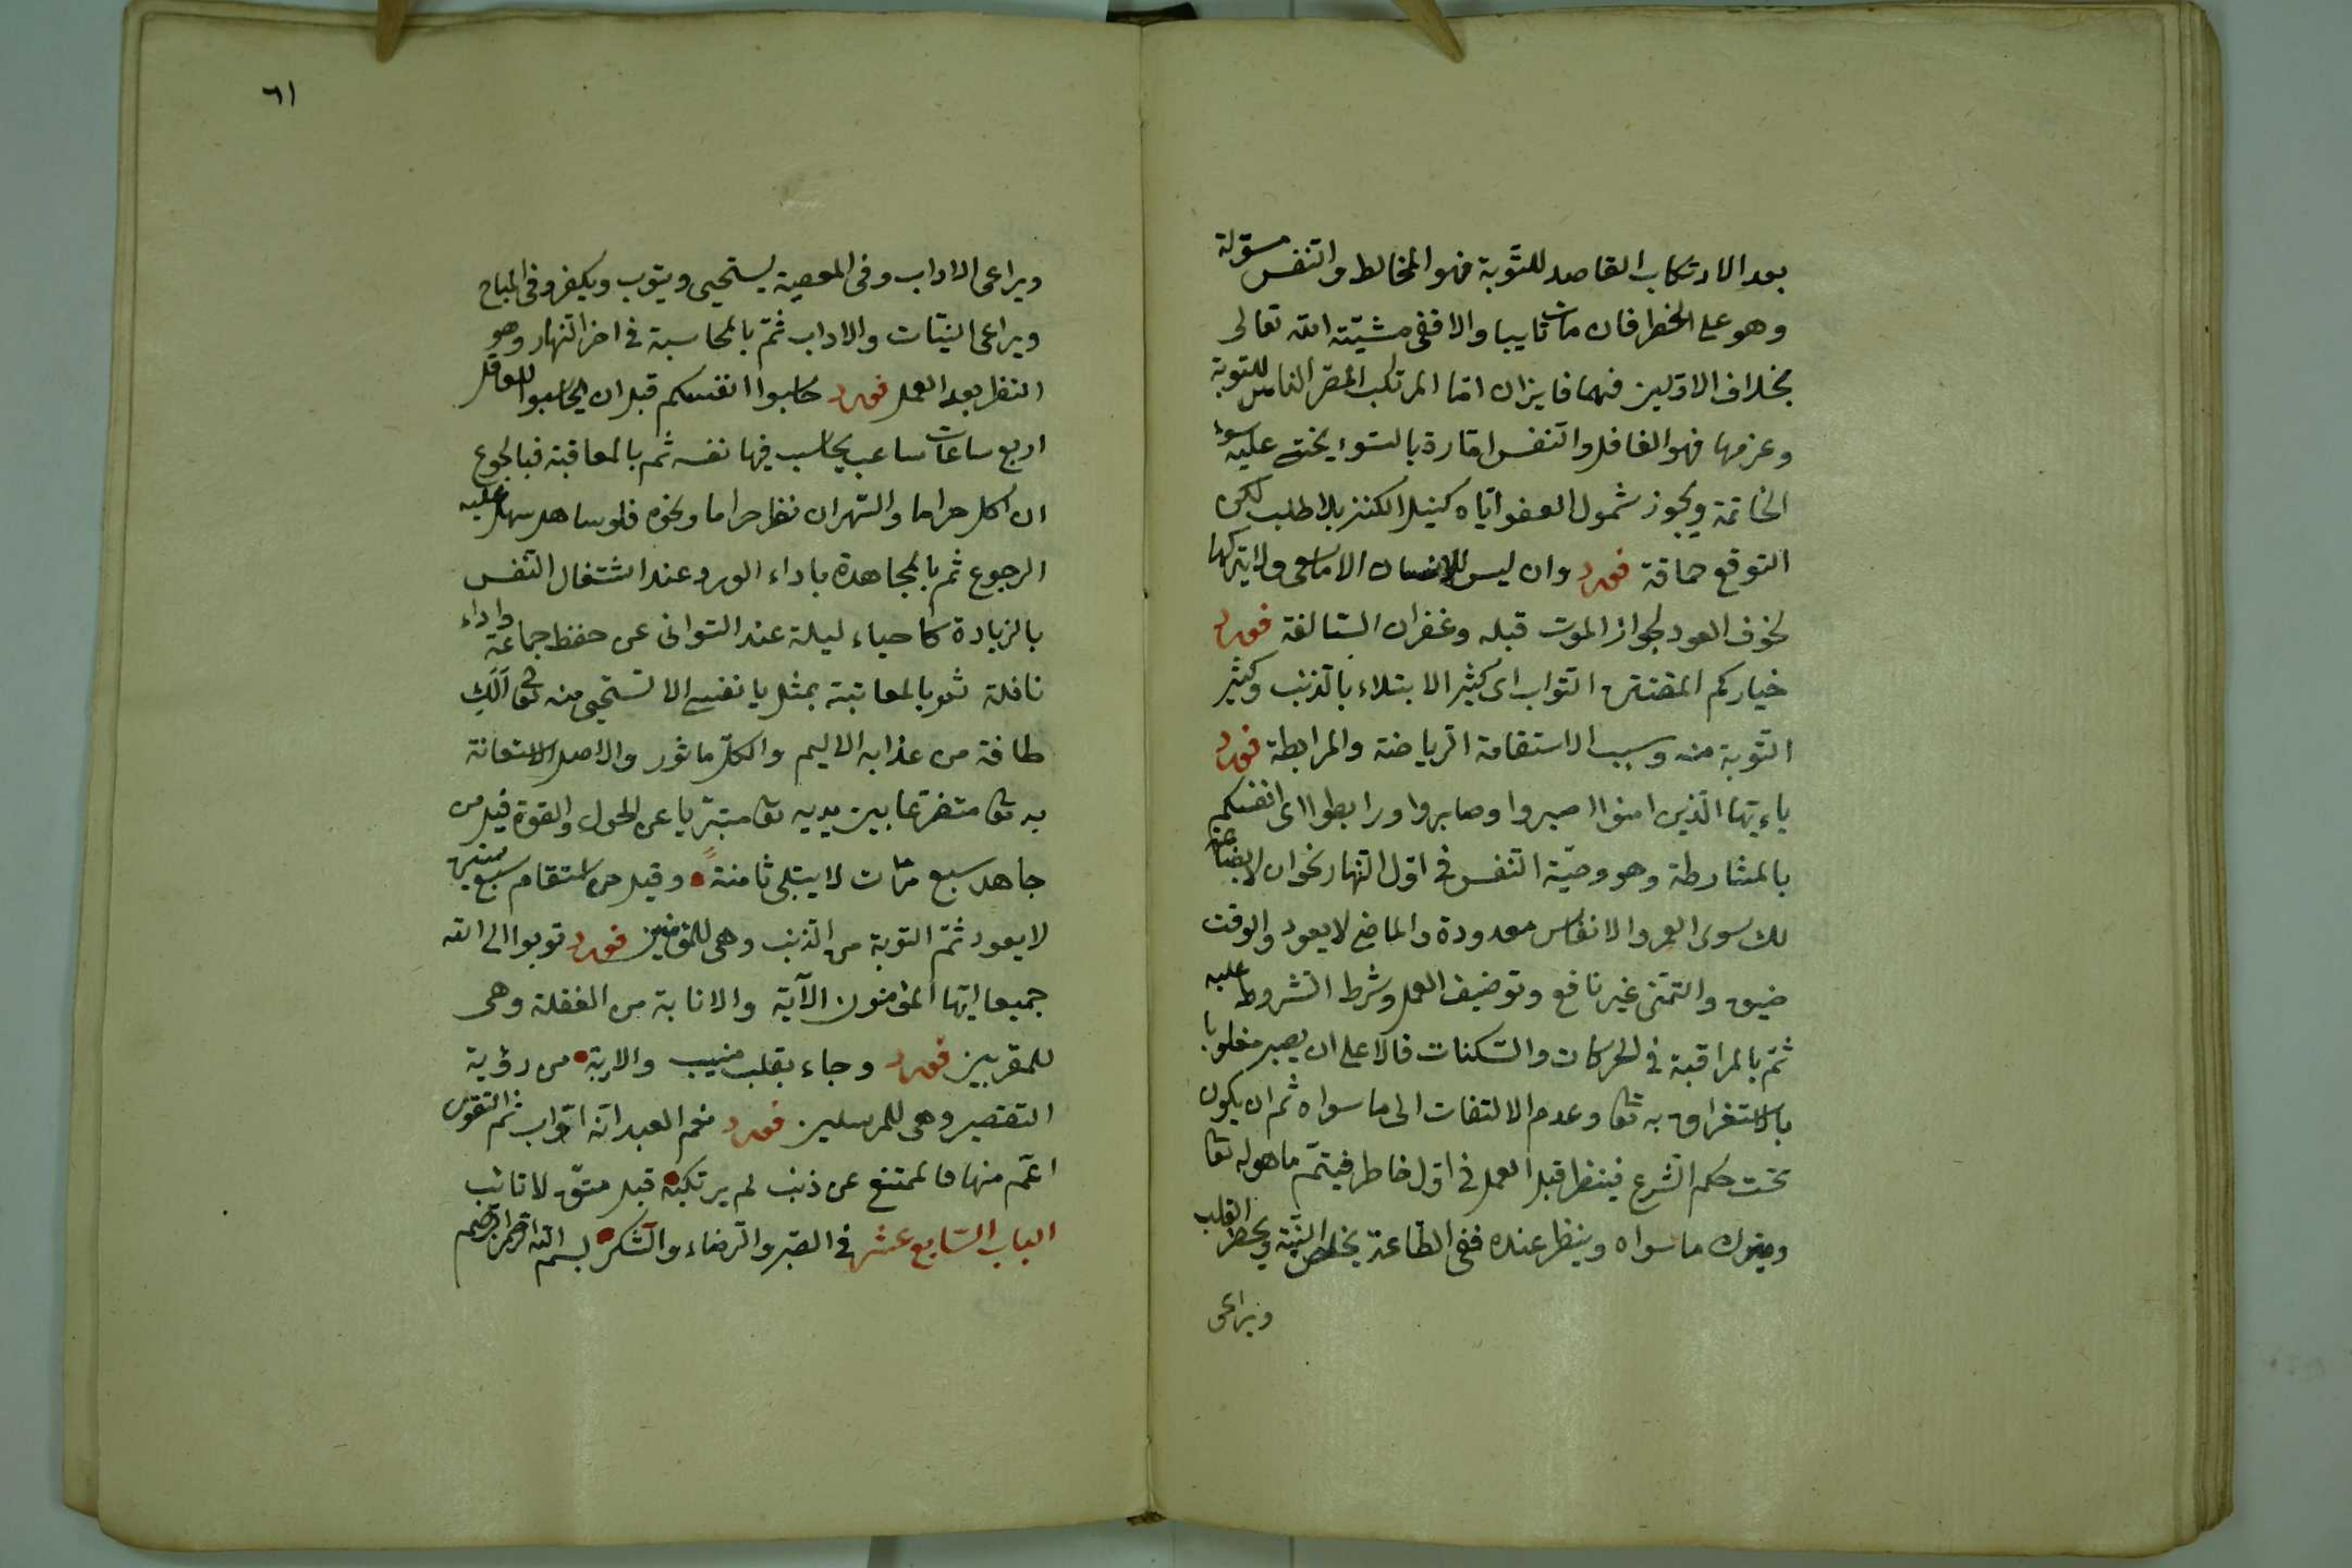 بعد الارتكاب القاصد للتوبة فهو المخالط والنفس مسوّلة
وهو على الخطر فان مات تايبا والا ففى مشيّته الله تعالى
بخلاف الاوّلين فهما فايزان امّا المرتكب المصرّ الناسى للتوبة
وعزمها فهو الغافل والنفس امّارة بالسّوء يختم عليه سوء
الخاتمة ويجوز شمول العفو ايّاه كنيل الكنز بلا طلب لكن
التوقع حماقة فورد وان ليس للانسان الا ما سعى ولا يتركها
لخوف العود لجواز الموت قبله وغفران السّالفة فورد
خياركم المفتتن التواب اى كثير الابتلاء بالذنب وكثير
التّوبة منه وسبب الاستقامة الرياضة والمرابطة فورد
ياءيّها الّذين امنوا اصبروا وصابروا ورابطوا اى انفسكم
بالمشارطة وهو وصيّة النّفس فى اوّل النّهار نحو ان لا بضاعة
لك سوى العمر والانفاس معدودة والماضى لا يعود والوقت
ضيق والتمنّى غير نافع وتوضيف العمل وشرط الشروط عليه
ثمّ بالمراقبة فى الحركات والسّكنات فالاعلى ان يصير مغلوبا
بالاستغراق به تعا وعدم الالتفات الى ما سواه ثم ان يكون
تحت حكم الشّرع فينظر قبل العمل فى اوّل خاطر فيتمّ ما هو له تعا
ويترك ما سواه وينظر عنده ففى الطّاعة يخلص النيّة ويحضر القلب
ويراعى
٦١
ويراعى الاداب وفى المعصية يستحيى ويتوب ويكفر وفى المباح
ويراعى النيّات والاداب ثمّ بالمحاسبة فى اخر النّهار وهو
النظر بعد العمل فورد حاسبوا انفسكم قبل ان يحاسبوا للعاقل
اربع ساعات ساعة يحاسب فيها نفسه ثم بالمعاقبة فبالجوع
ان اكل حراما والسّهر ان نظر حراما ونحوه فلو ساهل سهل عليه
الرجوع ثم بالمجاهدة باداء الورد عند اشتغال النّفس
بالزيادة كاحياء ليلة عند التوانى عن حفظ جماعة واداء
نافلة ثم بالمعاتبة بمثل يا نفسى الا تستحيى منه تعا الك
طاقة من عذابه الاليم والكلّ ماثور والاصل الاستعانة
به تعا متضرّعا بين يديه تعا متبرّيا عن الحول والقوة فقيل من
جاهد سبع مرّات لا يبتلى ثامنة وقيل من استقام سبع سنين
لا يعود ثمّ التوبة من الذنب وهى للمؤمنين فورد توبوا الى الله
جميعا ايّها المؤمنون الآية والانابة من الغفلة وهى
للمقربين فورد وجاء بقلب منيب والاوبة من رؤية
التقصير وهى للمرسلين فورد نعم العبد انّه اوّاب ثم التقوى
اعمّ منها فالممتنع عن ذنب لم يرتكبه قبل متّق لا تائب
الباب السّابع عشر فى الصّبر والرّضاء والشّكر بسم الله الرحمن الرحيم